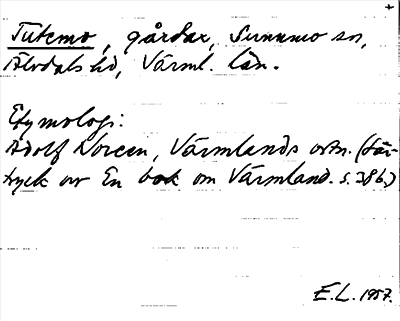 Tutemo, gårdar, Sunnemo sn,
Älvdals hd, Värml. län.
Etymologi:
Adolf Noreen, Värmlands ortn. (Sär-
tryck ur En bok om Värmland. s. 38 b.)
E.L. 1957.